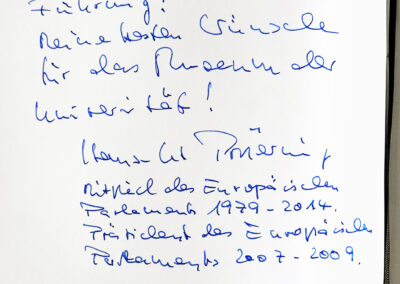 Führung!
Meine besten Wünsche
für das Museum der
Universität!
Hans-Gert Pöttering
Mitglied des Europäischen
Parlaments 1979-2014.
Präsident des Europäischen
Parlaments 2007-2009.